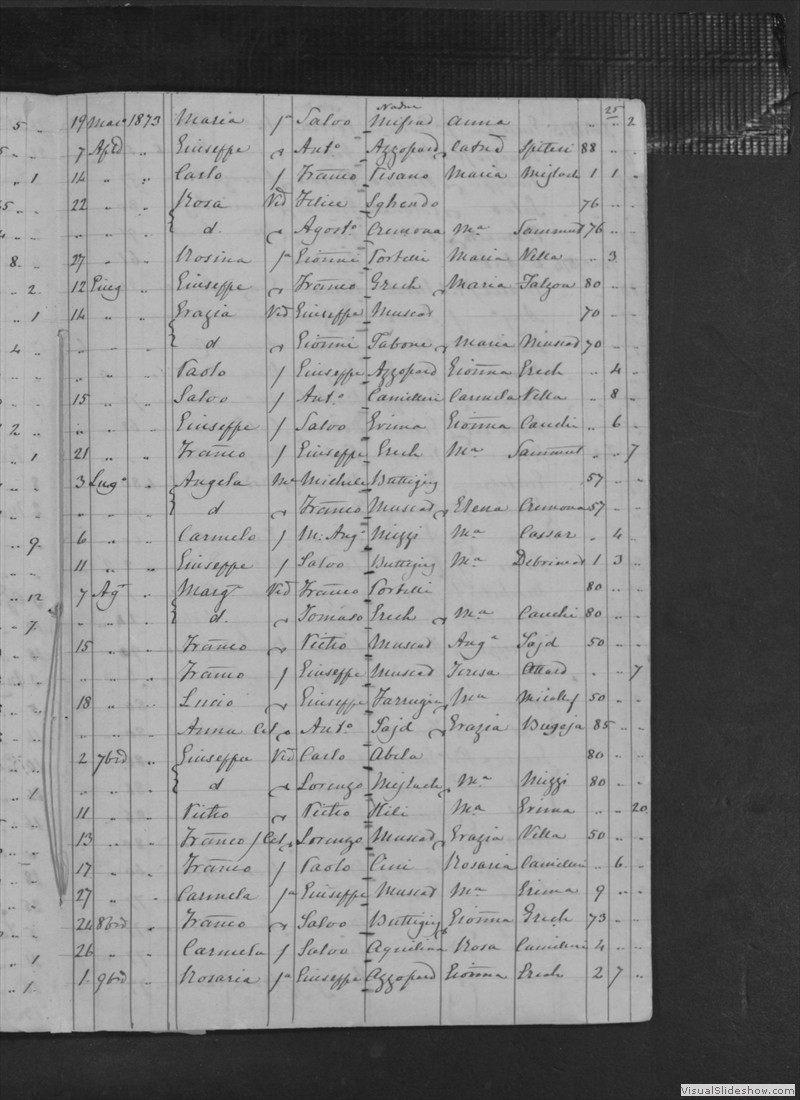 Nadur 25
5 19 Mar. 1873 Maria fa Salvo Mifsud Anna " " 2
7 Aple " Giuseppe Anto. Azzopard Catrd Spiteri 88 " "
1 14 " " Carlo f Franco Pisano Maria Mizlach 1 1 "
22 " " Rosa Vid Felice Sghendo 76 " "
d Agosto. Cremona Ma Sammut 76 " "
8 27 " " Rosina fa Gionni Portelli Maria Vella " 3
2 12 Giug " Giuseppe Franco Grech Maria Falzon 80 "
1 14 " " Grazia Vid Giuseppe Muscad 70
4 " " " d Gionni Tabone Maria Muscad 70 "
" " " Paolo f Giuseppe Azzopard Gionna Grech " 4 "
15 " " Salvo f Anto. Camilleri Carmela Vella " 8 "
2 " " Giuseppe f Salvo Grima Gionna Cauchi " 6 "
1 21 " " Franco f Giuseppe Grech Ma Sammut " " 7
3 Lugo " Angela Me Michele Buttigig 57 " "
d Franco Muscad Elena Cremona 57 "
9 6 " " Carmelo f M. Ango Mizzi Ma Cassar " 4
11 " " Giuseppe f Salvo Buttigig Ma Debrincat 1 3 "
12 7 Ago " Marga Vid Franco Portelli 80 " "
7 " " " d. Tomaso Grech Ma Cauchi 80 " "
15 " " Franco Pietro Muscad Anga Sajd 50 " "
" " " Franco f Giuseppe Muscad Teresa Attard " " 7
18 " " Lucio Giuseppe Farrugia Ma Micalef 50 " "
" " " Anna Cel Anto. Sajd Grazia Bugeja 85 " "
2 7bre " Giuseppa Vid Carlo Abela 80 " "
1 " " " d Lorenzo Mizlach Ma Mizzi 80 " "
11 " " Pietro Pietro Hili Ma Grima " " 20
13 " " Franco f Cel Lorenzo Muscad Grazia Vella 50 " "
17 " " Franco f Paolo Cini Rosaria Camilleri " 6 "
27 " " Carmela fa Giuseppe Muscad Ma Grima 9 " "
24 8bre " Franco Salvo Buttigig Gionna Grech 73 " "
1 26 " " Carmela f Salvo Aquilina Rosa Camilleri 4 " "
1 1. 9bre " Rosaria fa Giuseppe Azzopard Gionna Grech 2 7 "
VisualSlideshow.com